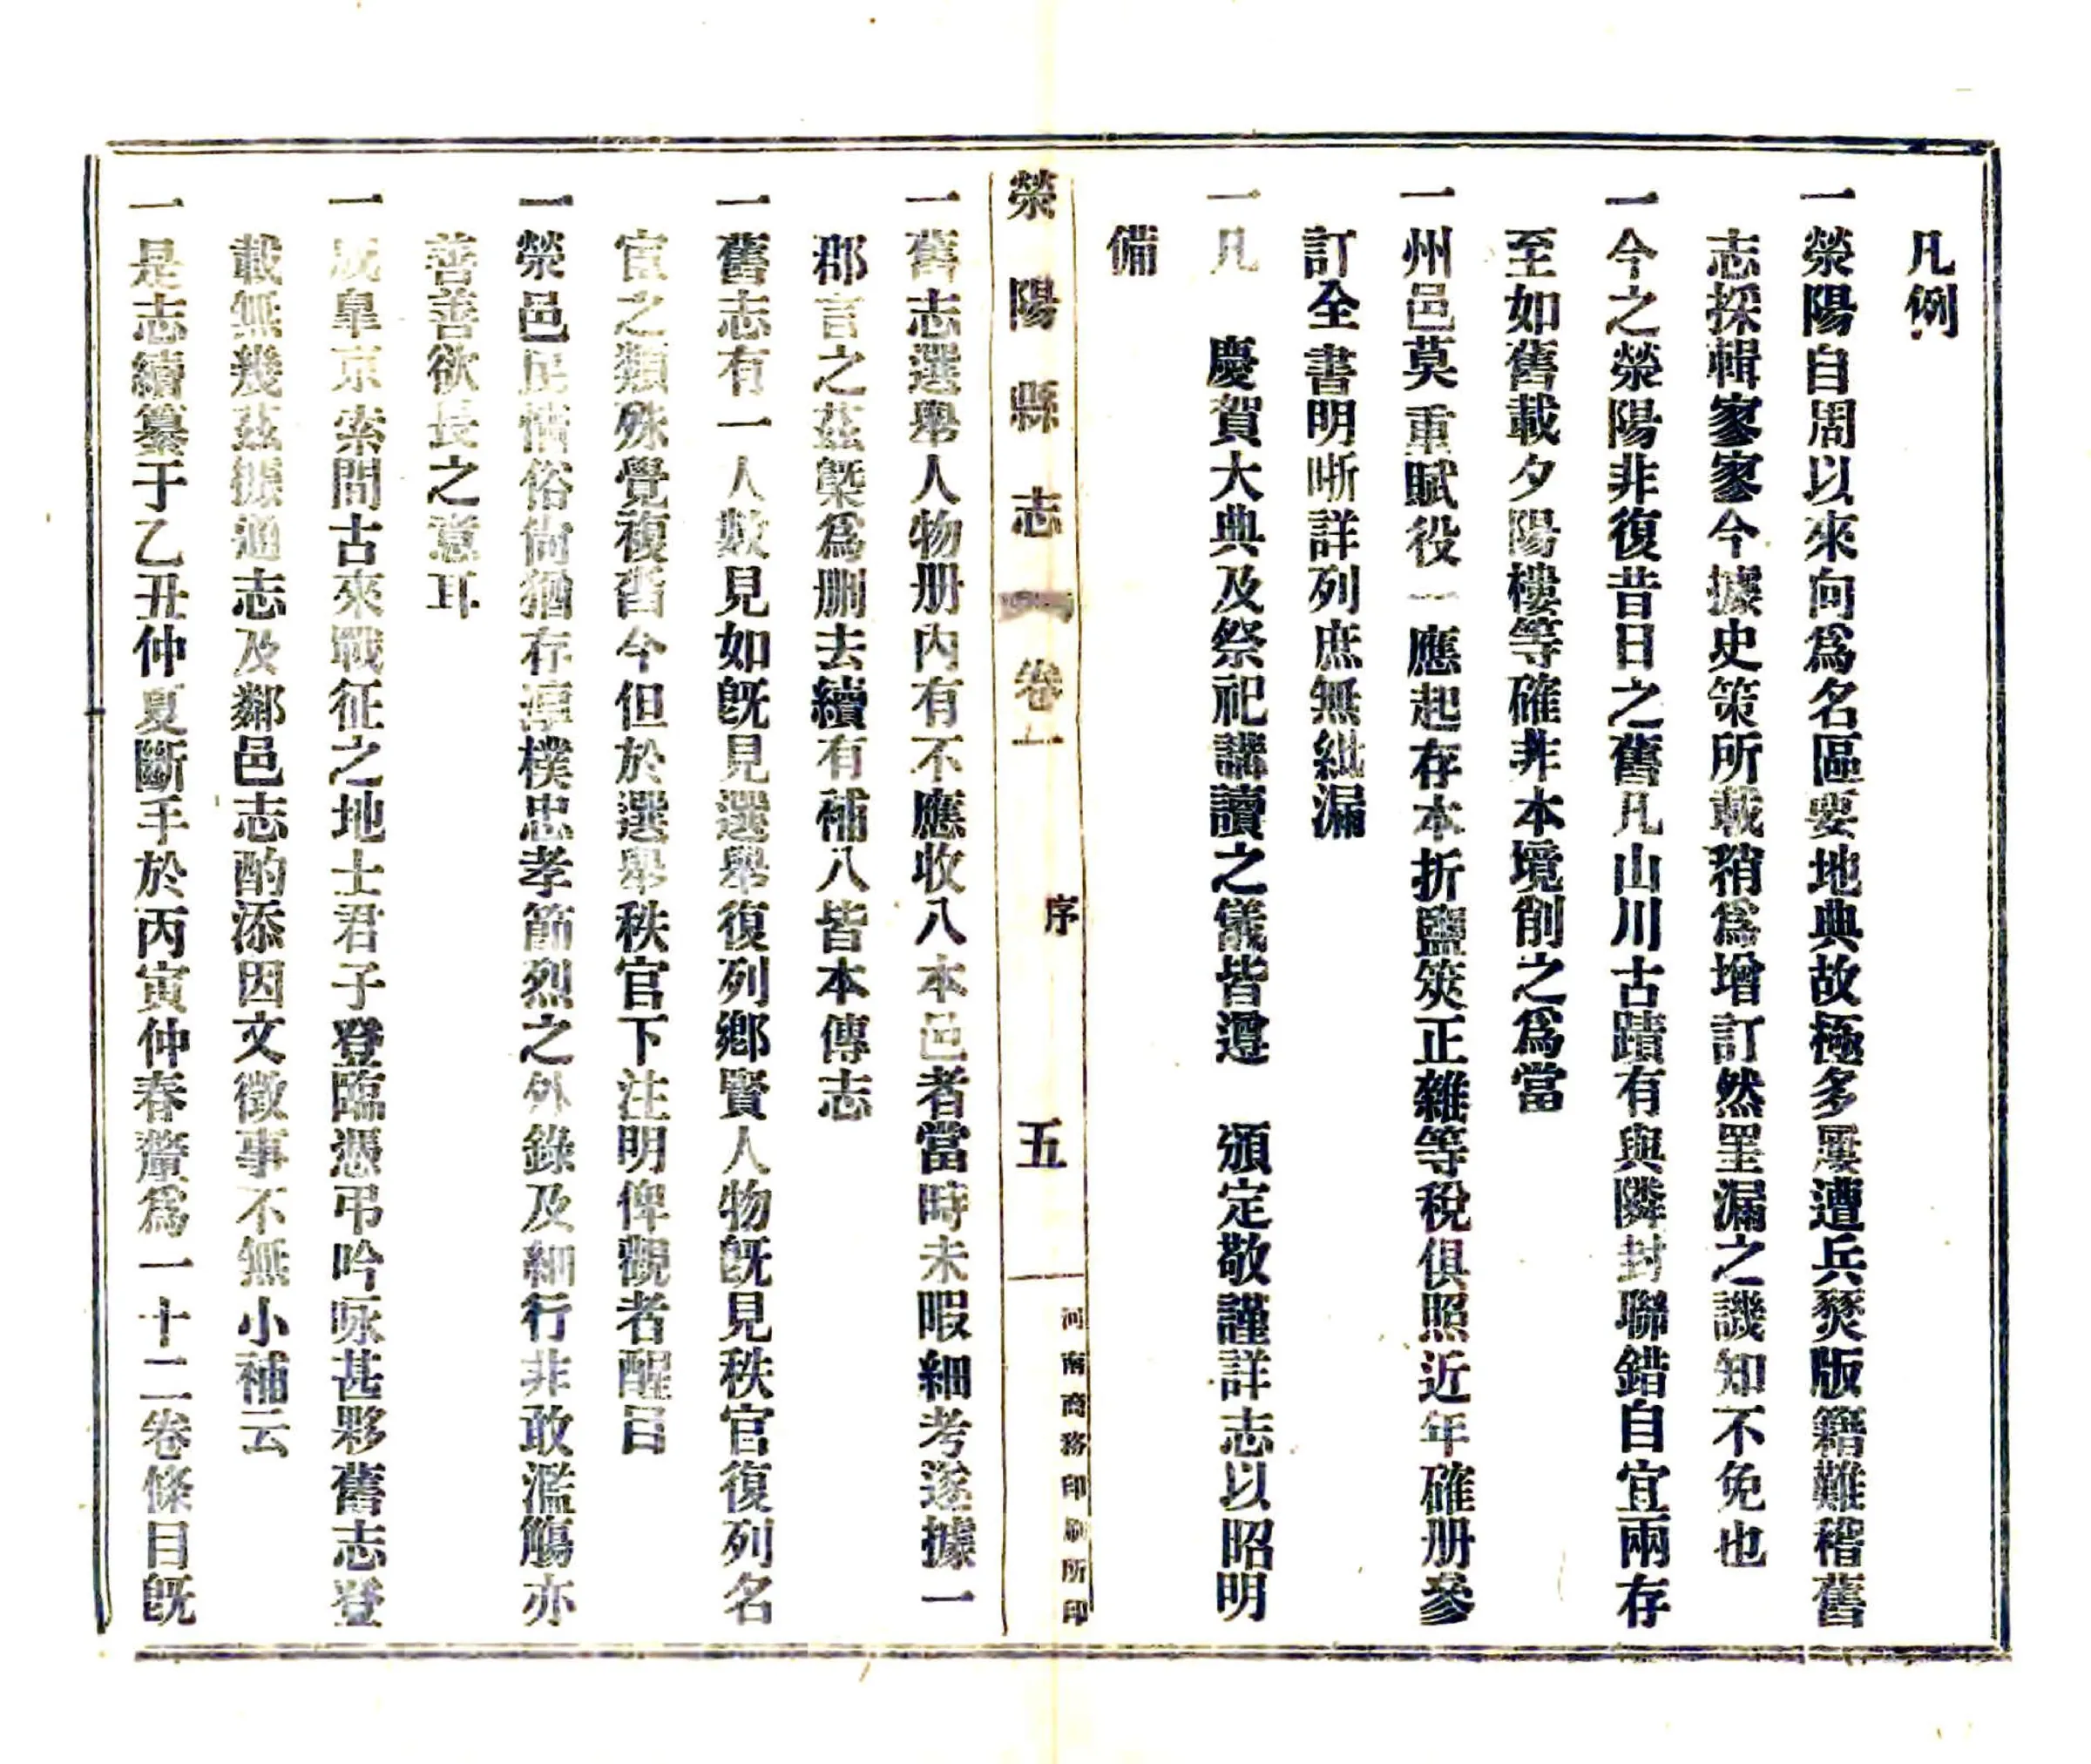 凡例
一滎陽自周以來向爲名區要地典故極多屢遭兵燹版籍難稽舊
志採輯家家今據史策所載稍爲增訂然罣漏之譏知不免也
一今之滎陽非復昔日之舊凡山川古蹟有與隣封聯錯自宜兩存
至如舊載夕陽樓等確非本境削之爲當
一州邑莫重賦役一應起存本折鹽筴正雜等稅俱照近年確册參
訂全書明晰詳列庶無紕漏
一凡　慶賀大典及祭祀講讀之儀皆遵　頒定敬謹詳志以昭明
備
滎陽縣志　卷一　序　五　河南商務印刷所印
一舊志選舉人物册内有不應收八本邑者當時未暇細考遂據一
郡言之茲槩爲删去續有補八皆本傳志
一舊志有一人數見如旣見選舉復列鄕賢人物旣見秩官復列名
宦之類殊覺複沓今但於選舉秩官下注明俾觀者醒目
一滎邑民情俗尙猶存淳樸忠孝節烈之外錄及細行非敢濫觴亦
善善欲長之意耳
一成皐京索間古來戰征之地士君子登臨憑弔吟咏甚夥舊志登
載無幾茲據通志及鄰邑志酌添因文徵事不無小補云
一是志續纂于乙丑仲夏斷手於丙寅仲春釐爲一十二卷條目旣